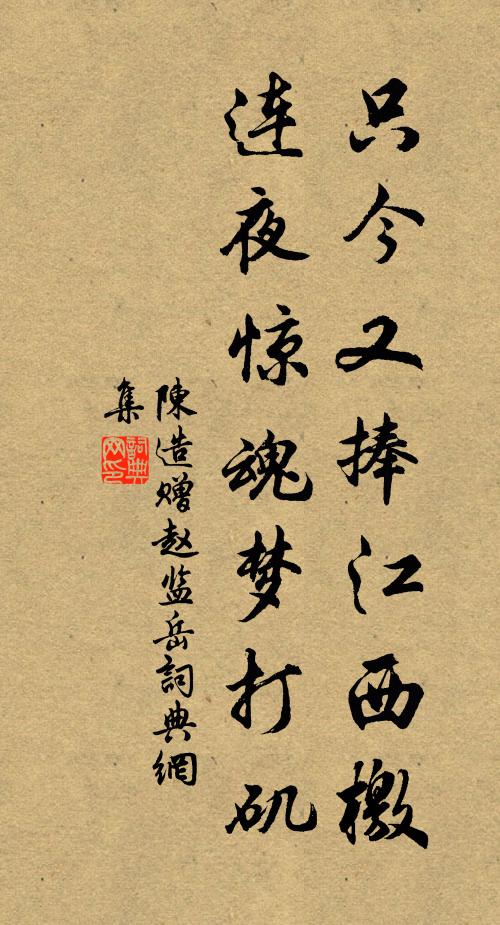 只今又捧江西檄
连夜惊魂梦打矶
陳造赠赵监岳詞典網
集
詞典
网印